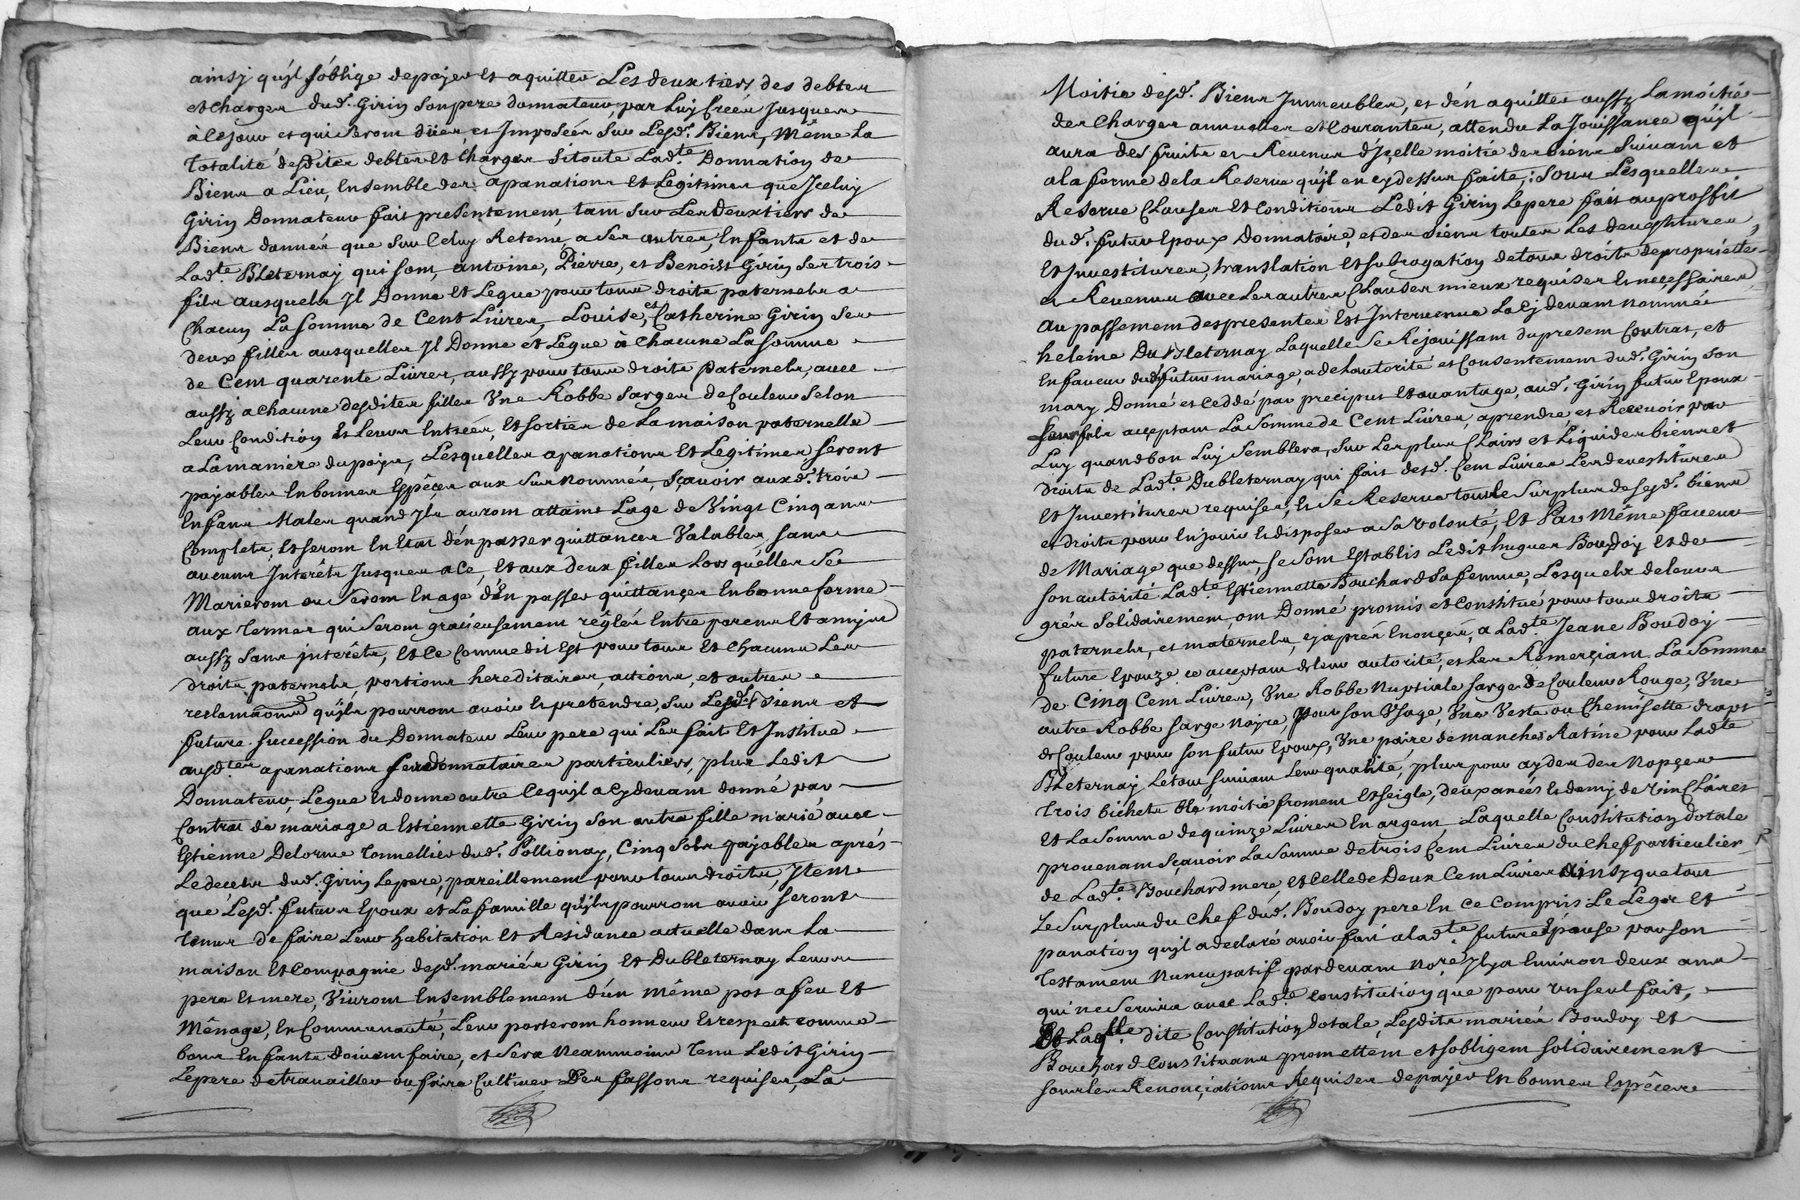 ainsy qu'yl s'oblige depayer et aquitter Les deux tiers des debtes
et charges dud. Girin son pere donnateur, par Luy Creés Jusques
à ce Jour et qui seront dües et Imposées sur Lesd. Biens, Même la
Totalité desdites debtes et charges sitoute Lad.te Donnation de
Biens a Lieu, Ensemble des apanations et Legitimes que Jceluy
Girin Donnateur fait presentement, tant sur Les deux tiers de
Biens donnés que sur Celuy Retenu, a ses autres Enfants et de
Lad.te Bleternay qui sont, antoine, Pierre, et Benoist Girin ses trois
fils ausquels Jl Donne et Legue pour tous droits paternels a
Chacun La somme de Cent Livres, Louise, et Catherine Girin ses
deux filles ausquelles Jl Donne et Legue à chacune La somme
de Cent quarente Livres, aussy pour tous droits paternels, avec
aussy a chacune desdites filles Vne Robbe sarge de Couleur selon
Leur Condition Et Leurs Entrées, et sorties de La maison paternelle
a La maniere du païs, Lesquelles apanations et Legitimes, seront
payables En bonnes Espêces aux sus nommés, sçavoir auxd. trois
Enfans Males quand Jls auront attaint L'age de Vingt Cinq ans
Complets, et seront En Etat d'en passer quittances Valables, sans
aucuns Interêts Jusques a Ce, et aux deux filles Lors qu'elles se
Marieront ou seront En age d'en passer quittances En bonne forme
aux Termes qui seront gracieusement réglés Entre parens et amys
aussy sans interêts, et ce Comme dit Est pour tous et Chacuns Les
droits paternels, portions hereditaires, actions, et autres
reclamaons qu'yls pourront avoir et pretendre, sur Lesd. Biens et
future succession du Donnateur Leur pere qui Les fait et Institue
ausd.tes apanations ses donnataires particuliers, plus Ledit
Donnateur, Legue et donne outre Ce qu'yl a Cy devant donné par
Contrat de mariage a Estiennette Girin son autre fille mariée avec
Estienne Delorme Tonnellier dud. Pollionay, Cinq sols payables aprés
Le decéts dud. Girin Le pere, pareillement pour tous droits, Jtem
que Lesd. futurs Epoux et La famille qu'yls pourront avoir seront
Tenus de faire Leur habitation et Residance actuelle dans La
maison et Compagnie desd. mariés Girin et Dubleternay Leurs
pere et mere, Vivront Ensemblement d'un Même pot a feu et
Ménage, En Communauté, Leur porteront honneur et respect comme
bons Enfants doivent faire, et sera Neanmoins Tenu Ledit Girin
Le pere de travailler ou faire Cultiver Des fassons requises, La
Moitié desd. Biens Immeubles, et d'en aquitter aussy La moitié
des Charges annuelles et Courantes, attendu La Jouissance qu'yl
aura des fruits et Revenus d'Jcelle moitié des biens suivant et
a la forme de la Reserve qu'yl en cy dessus faite; sous Lesquelles
Reserve Clauses et Conditions Ledit Girin Le pere fait au proffit
dud. futur Epoux Donnataire, et des siens toutes Les devestitures
Et Investitures, translation et subrogation de tous droits de propriétté
et Revenus avec Les autres Clauses mieux requises et necessaires
Au passement des presentes Est Intervenue La Cy devant nommée
heleine Du Bleternay Laquelle se Rejouissant du present Contrat, et
En faveur dud. futur mariage, a de L'autorité et Consentement dud. Girin son
mary Donné et Ceddé par preciput et avantage, aud. Girin futur Epoux
son fils acceptant La somme de Cent Livres, a prendre, et Recevoir par
Luy quand bon Luy semblera, sur Les plus Clairs et Liquides biens et
droits de Lad.te Dubleternay qui fait desd. Cent Livres Les devestitures
Et Investitures requises, et se Reserve tout Le surplus de sesd. biens
et droits pour En jouir et disposer a sa volonté, Et Par Même faveur
de Mariage que dessus, se sont Establis Ledit hugues Boudoy et de
son autorité Lad.te Estiennette Bouchard sa femme, Lesquels de Leurs
grés solidairement, ont Donné promis et Constitué pour tous droits
paternels, et maternels, cy aprés Enoncés, a Lad.te Jeane Boudoy
future Epouze ce acceptant de Leur autorité, et Les Remerçiant La somme
de Cinq Cent Livres, Vne Robbe Nuptiale sarge de Couleur Rouge, Vne
autre Robbe sarge Noire, pour son Vsage, Vne Veste ou Chemisette drapt
de Couleur pour son futur Epoux, Vne paire de manches Ratine pour Lad.te
Bleternay Le tout suivant Leur qualité, plus pour ayder des Nopçes
Trois bichets bled moitié froment et seigle, deux anées et demy de Vin Clairet
Et La somme de quinze Livres En argent, Laquelle Constitution dotale
provenant sçavoir La somme de trois Cent Livres du Chef particulier
de Lad.te Bouchard mere, et celle de Deux Cent Livres ainsy que tout
Le surplus du Chef dud. Boudoy pere En ce Compris Le Legs et
panation qu'yl a declaré avoir fait a lad.te future Epouse par son
Testament Nuncupatif pardevant No.re Jl y a Environ deux ans
qui ne servira avec Lad.te Constitution que pour Vn seul fait,
Et Laq.lle dite Constitution dotale, Lesdits mariés Boudoy et
Bouchard Constituans promettent et s'obligent solidairement
sous Les Renonciations Requises de payer En bonnes Espêces